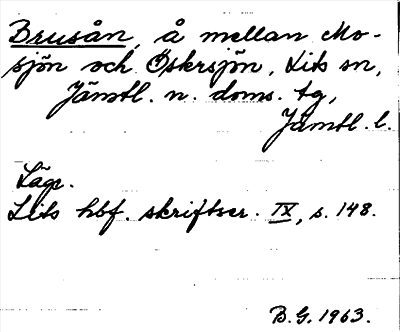 Brusån, å mellan Mo-
sjön och Öskersjön, Lits sn,
Jämtl. n. doms. tg,
Jämtl. l.
Läge.
Lits hbf. skriftser. IX, s. 148.
B.G. 1963.